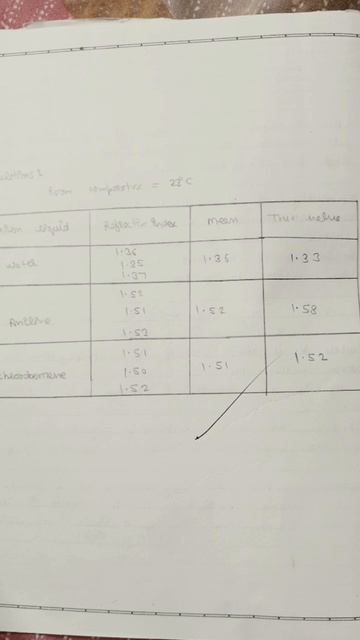 Room temperature = 22°C
liquid Refractive Index mean True value
Water 1.36 1.35 1.33
1.35
1.37
Aniline 1.52 1.52 1.58
1.51
1.53
chlorobenzene 1.51 1.51 1.52
1.50
1.52